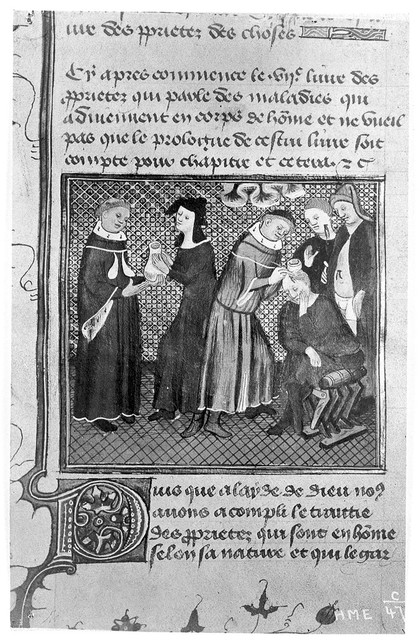 iure des pprietez des choses
Cy apres commence le vije liure des
pprietez qui parle des maladies qui
aduiennent en corps de home et ne vueil
pas que le prologue de cestui liure soit
compte pour chapitre et cetera
Puis que a layde de dieu no9
auons acompli le traittie
des pprietez qui sont en home
selon sa nature et qui le gar
HME
C
47